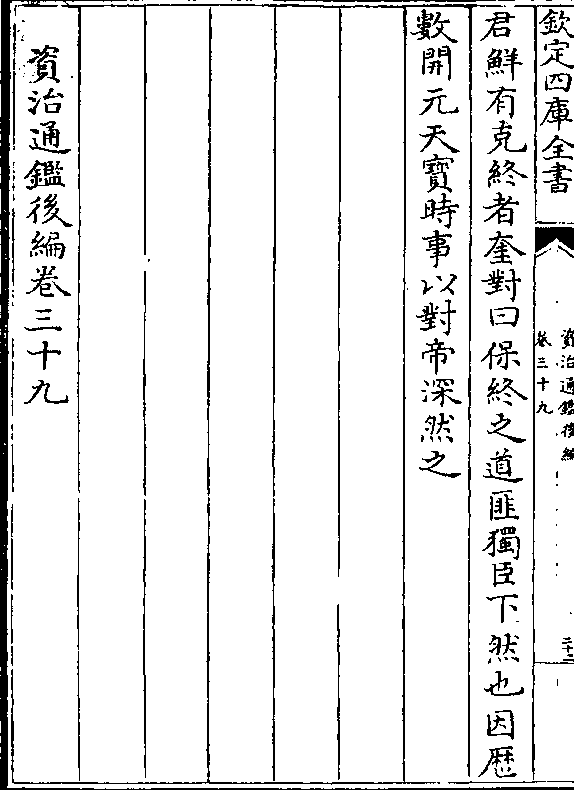 欽定四庫全書
資治通鑑後編
卷三十九
二十二
君鮮有克終者奎對曰保終之道匪獨臣下然也因歷
數開元天寶時事以對帝深然之
資治通鑑後編卷三十九